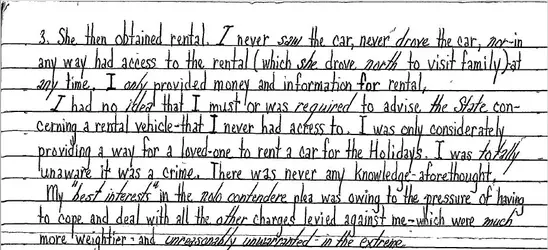 3. She then obtained rental. I never saw the car, never drove the car, nor-in
any way had access to the rental (which she drove north to visit family)-at
any time. I only provided money and information for rental.
I had no idea that I must or was required to advise the State con-
cerning a rental vehicle-that I never had access to. I was only considerately
providing a way for a loved-one to rent a car for the Holidays. I was totally
unaware it was a crime. There was never any knowledge-aforethought.
My "best interests" in the nolo contendere plea was owing to the pressure of having
to cope and deal with all the other charges levied against me-which were much
more weightier-and unreasonably unwarranted-in the extreme.